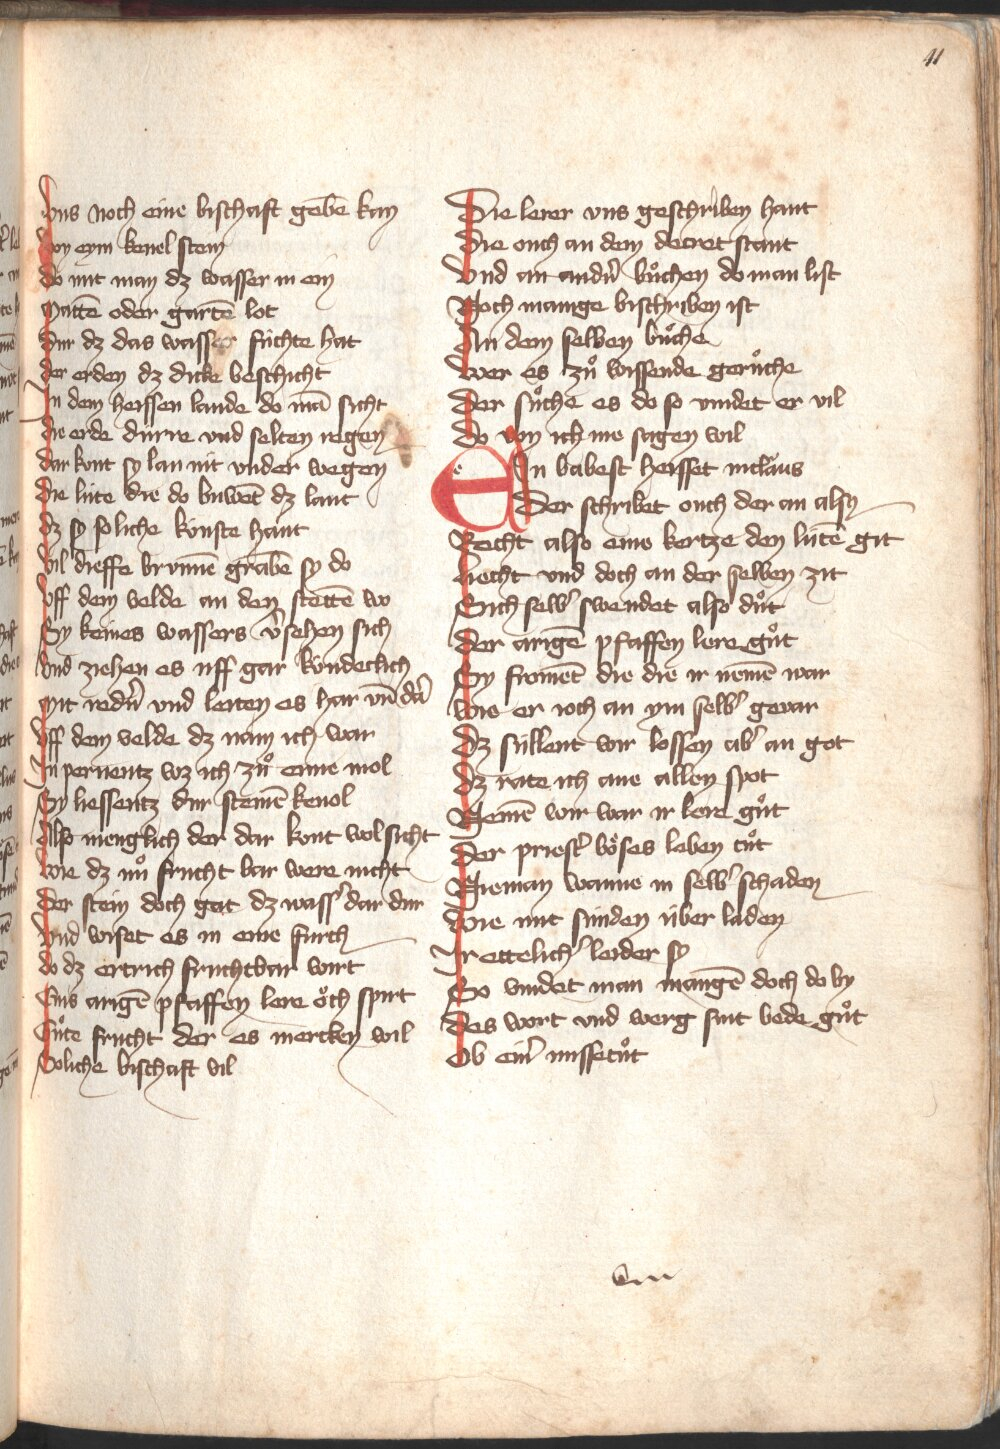 41
Vns noch eine bischaft gebē kan
Von eym kenel stein
do mit man dz wasser in ein
Mattē oder gartē lot
dur dz das wasser fúchte hat
der erden dz dicke beschicht
In dem heissen lande do mā sicht
die erde durre vnd selten regen
dar kont sy lan nit vnder wegen
die lúte die do buwēt dz lant
dz sy soliche kúnste hant
vil dieffe brvnnē grabē sy do
vff dem velde an den stettē wo
Sy keines wassers v̾sehen sich
Vnd ziehen es uff gar kúndeclich
Mit redn̾ vnd leiten es har vn̄ da̾
vff dem velde dz nam ich war
In pernentz voz ich zuͦ eime mol
Sy liessentz dur steinē kenol
Also menglich der dar kont wol sicht
Wie dz nuͦ frucht bar were nicht
Der stein doch gat dz wass̾ dar dur
Vnd wiset es in eine furch
do dz ertrich fruchtbar wirt
Eins argē pfaffen lere oͤch spirt
Guͦte frucht der es mercken wil
Soliche bischaft vil
Die lerer vns geschriben hant
Die ouch an dem decret stant
Vnd an andn̾ buͤchen do man list
Noch manige bischriben ist
An dem selben buͦche
Wer es zuͦ wissende geruͦche
Der suͦche es do so vindet er vil
do von ich me sagen wil
e
EIn babest heisset niclaus
Der schribet ouch der an alsus
Recht also eine kertze den lútē git
Liecht vnd doch an der selben zit
Sich selb̾ swendet also duͦt
Der argē pfaffen lere guͦt
Sy fromēt die die ir nemē war
Wie er joch an ym selb̾ gevar
Dz súllent wir lossen ab̾ an got
Dz rate ich ane allen spot
Nemē wir war ir lere guͦt
Der priest̾ boͤses leben tuͦt
Nieman wanne in selb̾ schaden
Wie mit súnden úber laden
Ir ettelich̾ leider sy
So vindet man mangē doch do by
Des wort vnd werg sint bede guͦt
Ob ein̾ missetuͦt